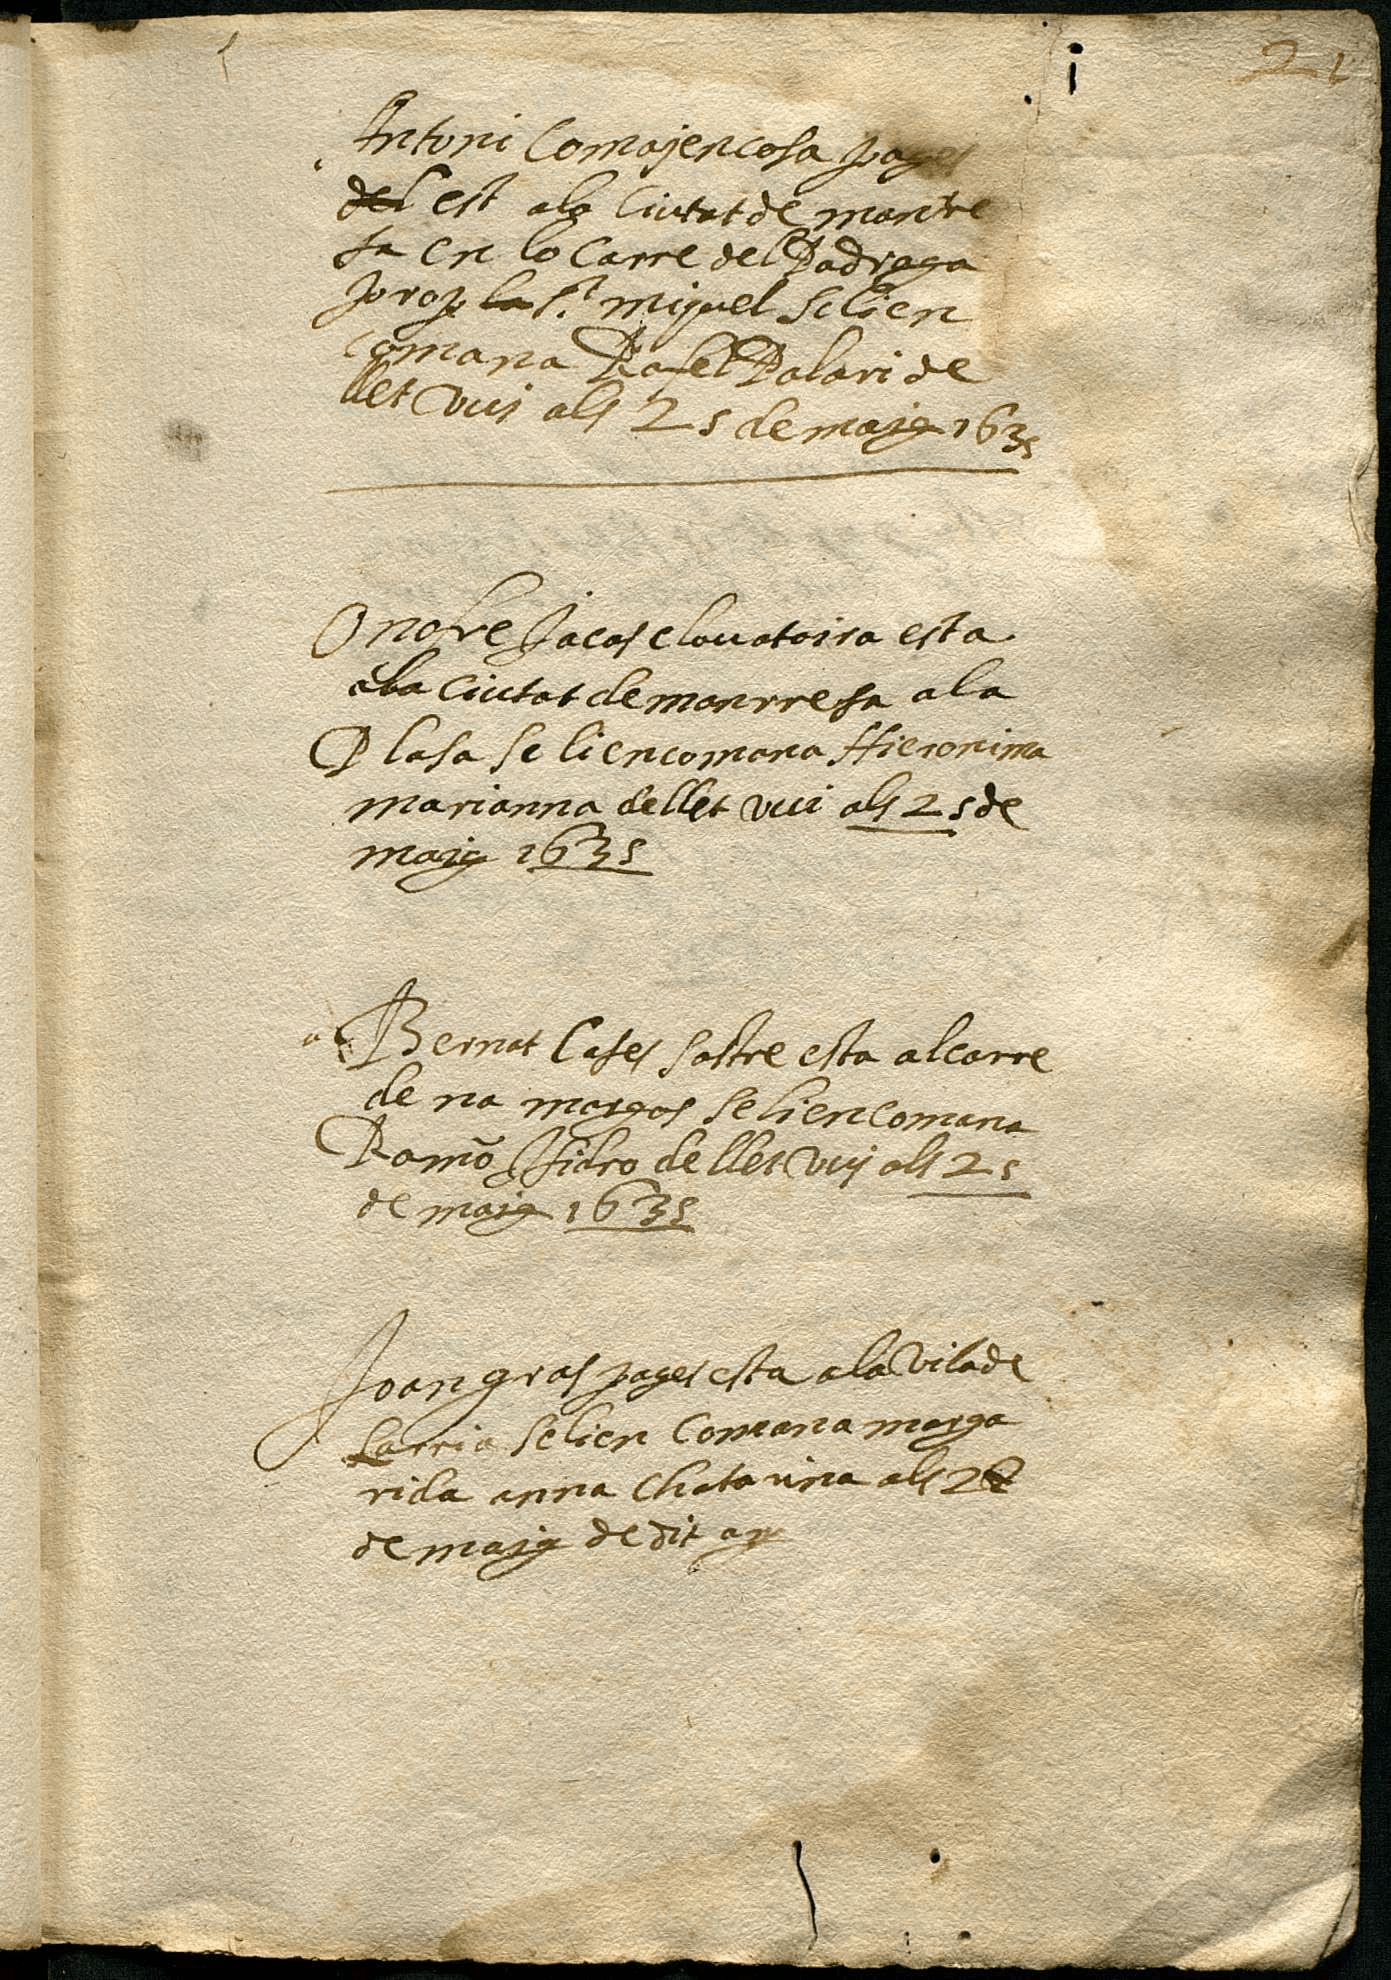 21
Antoni Comajencosa pages
del est ala Ciutat de manrre
sa en lo Carre del Padraga
prop la St. miquel seli en
comana Rafel Palari de
llet vui als 25 de maig 1635
Onofre Jacas clovataira esta
ala Ciutat de manrresa ala
Plasa se li encomana Hieronima
marianna de llet vui als 25 de
maig 1635
Bernat Cases sastre esta al carre
de na margos se li encomana
Ramō Isidro de llet vuy als 25
de maig 1635
Joan gras pages esta ala vila de
Sarria se li en Comana marga
rida anna Chatarina als 28
de maig de dit any